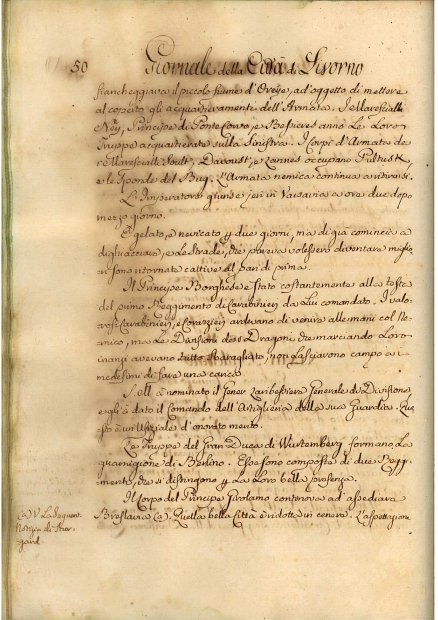 50 Giornale della Città di Livorno
fiancheggiava il piccolo fiume d'Oreije, ad'oggetto di mettere
al coperto gli acquartieramente dell'Armata. I Marescialli
Neÿ, Principe di Ponte Corvo, e Bessieres anno Le Loro
Truppe acquartierate sulla Sinistra. I Corpi d'Armata de
r Marescialli Soult, Davoust, e Lannes occupano Pultusk
e le sponde del Bug. L'Armata nemica continua a ritirarsi.
L'Imperatore giunse jeri in Varsavia a ore due dopo
mezzo giorno.
E gelato, e nevicato p due giorni, ma di già comincia a
dighiacciare, e Le Strade, che pareva volessero diventare miglio,
ri sono ritornate cattive al pari di prima.
Il Principe Borghese è stato costantemente alla testa
del primo Reggimento di Carabinieri da Lui comandato. I valo
rosi Carabinieri, e Corazzieri ardevano di venire alle mani col Ne,
mico, ma Le Divisioni de i Dragoni che marciando Loro
innanzi avevano tutto sbaragliato, non lasciavono campo a i
medesimi di fare una carica
S. M. à nominato il Gener Lariboissiera Generale di Divisione
e gli à dato il Comando dell'Artiglieria della sua Guardia. Que
sto è un'Uffiziale d'onorato merito.
Le Truppe del Gran Duca di Wurtzemberg formano La
guarnigione di Berlino. Esse sono composte di due Reggi,
mento, che si distinguono p La Loro bella presenza.
Il Corpo del Principe Girolamo continova ad'assediare
Breslavia (a). Quella bella Città è ridotta in cenere. L'aspettazione
(a) V. La seguente
Notizia di Star
gard